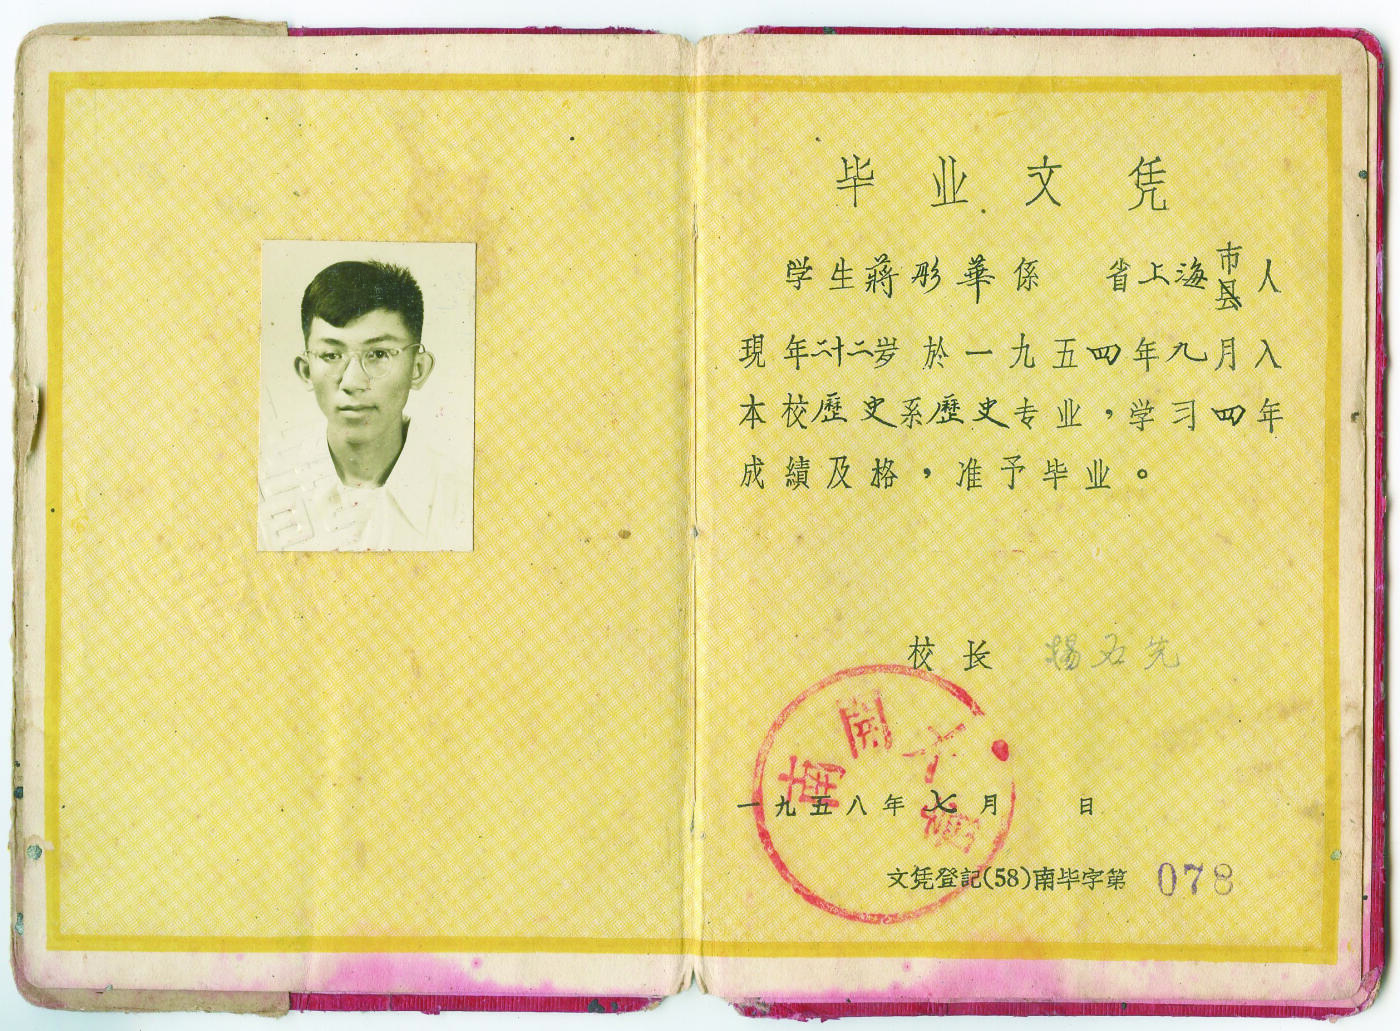 毕业文凭
学生蔣彤華係 省上海市县人
現年二十二岁於一九五四年九月入
本校歷史系歷史专业，学习四年
成績及格，准予毕业。
校长 楊石先
南開大學
一九五八年七月 日
文凭登記(58)南毕字第 078